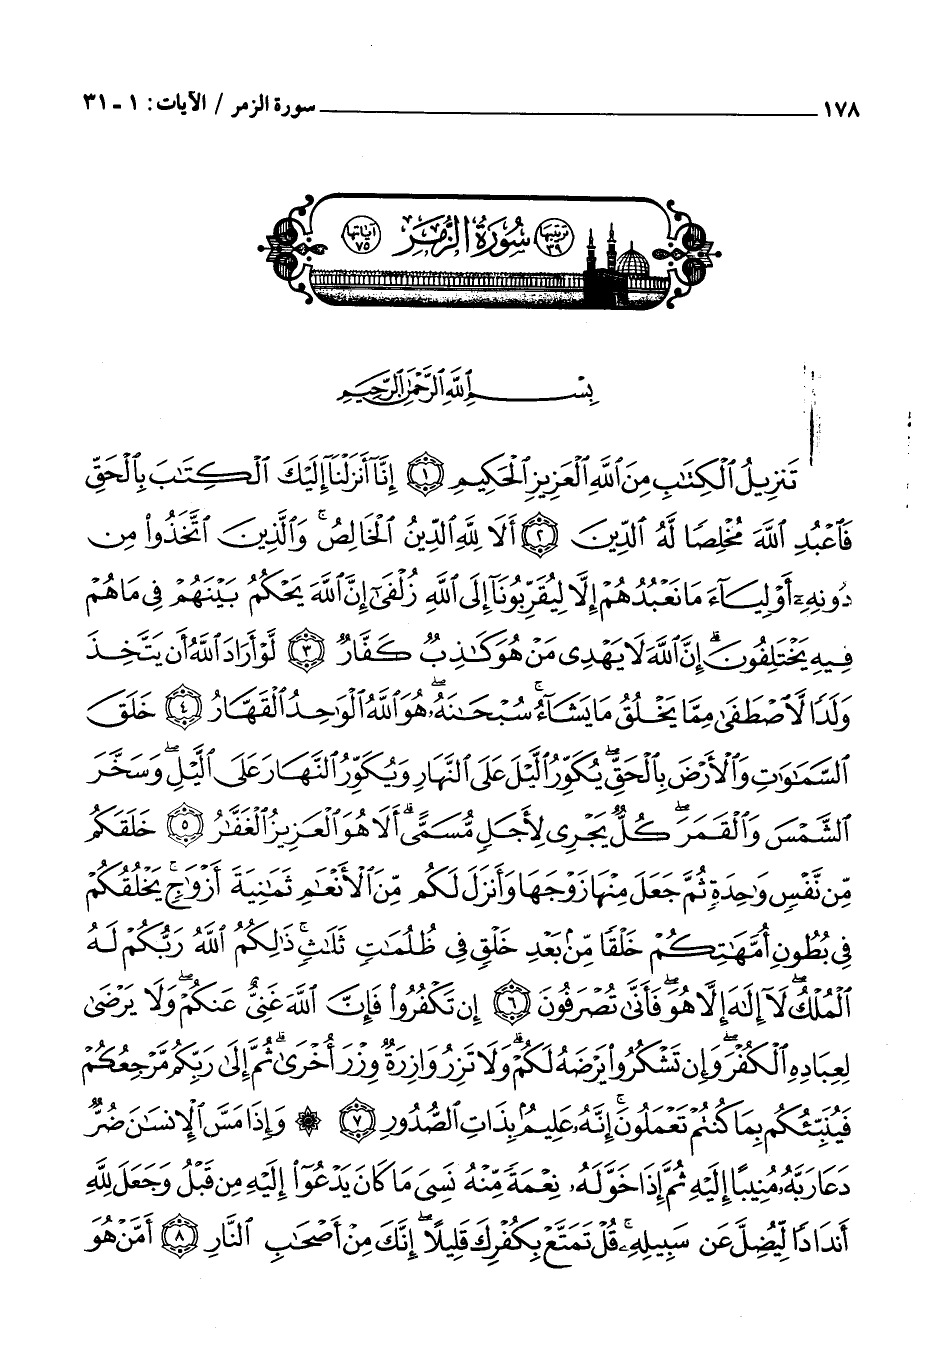 ١٧٨ سورة الزمر / الآيات: ١ - ٣١
ترتيبها ٣٩ سُورَةُ الزُّمَرِ آياتها ٧٥
بِسْمِ ٱللَّهِ ٱلرَّحْمَٰنِ ٱلرَّحِيمِ
تَنزِيلُ ٱلْكِتَٰبِ مِنَ ٱللَّهِ ٱلْعَزِيزِ ٱلْحَكِيمِ ﴿١﴾ إِنَّآ أَنزَلْنَآ إِلَيْكَ ٱلْكِتَٰبَ بِٱلْحَقِّ
فَٱعْبُدِ ٱللَّهَ مُخْلِصًا لَّهُ ٱلدِّينَ ﴿٢﴾ أَلَا لِلَّهِ ٱلدِّينُ ٱلْخَالِصُ ۚ وَٱلَّذِينَ ٱتَّخَذُوا۟ مِن
دُونِهِۦٓ أَوْلِيَآءَ مَا نَعْبُدُهُمْ إِلَّا لِيُقَرِّبُونَآ إِلَى ٱللَّهِ زُلْفَىٰٓ إِنَّ ٱللَّهَ يَحْكُمُ بَيْنَهُمْ فِى مَا هُمْ
فِيهِ يَخْتَلِفُونَ ۗ إِنَّ ٱللَّهَ لَا يَهْدِى مَنْ هُوَ كَٰذِبٌ كَفَّارٌ ﴿٣﴾ لَّوْ أَرَادَ ٱللَّهُ أَن يَتَّخِذَ
وَلَدًا لَّٱصْطَفَىٰ مِمَّا يَخْلُقُ مَا يَشَآءُ ۚ سُبْحَٰنَهُۥ ۖ هُوَ ٱللَّهُ ٱلْوَٰحِدُ ٱلْقَهَّارُ ﴿٤﴾ خَلَقَ
ٱلسَّمَٰوَٰتِ وَٱلْأَرْضَ بِٱلْحَقِّ ۖ يُكَوِّرُ ٱلَّيْلَ عَلَى ٱلنَّهَارِ وَيُكَوِّرُ ٱلنَّهَارَ عَلَى ٱلَّيْلِ ۖ وَسَخَّرَ
ٱلشَّمْسَ وَٱلْقَمَرَ ۖ كُلٌّ يَجْرِى لِأَجَلٍ مُّسَمًّى ۗ أَلَا هُوَ ٱلْعَزِيزُ ٱلْغَفَّٰرُ ﴿٥﴾ خَلَقَكُم
مِّن نَّفْسٍ وَٰحِدَةٍ ثُمَّ جَعَلَ مِنْهَا زَوْجَهَا وَأَنزَلَ لَكُم مِّنَ ٱلْأَنْعَٰمِ ثَمَٰنِيَةَ أَزْوَٰجٍ ۚ يَخْلُقُكُمْ
فِى بُطُونِ أُمَّهَٰتِكُمْ خَلْقًا مِّنۢ بَعْدِ خَلْقٍ فِى ظُلُمَٰتٍ ثَلَٰثٍ ۚ ذَٰلِكُمُ ٱللَّهُ رَبُّكُمْ لَهُ
ٱلْمُلْكُ ۖ لَآ إِلَٰهَ إِلَّا هُوَ ۖ فَأَنَّىٰ تُصْرَفُونَ ﴿٦﴾ إِن تَكْفُرُوا۟ فَإِنَّ ٱللَّهَ غَنِىٌّ عَنكُمْ ۖ وَلَا يَرْضَىٰ
لِعِبَادِهِ ٱلْكُفْرَ ۖ وَإِن تَشْكُرُوا۟ يَرْضَهُ لَكُمْ ۗ وَلَا تَزِرُ وَازِرَةٌ وِزْرَ أُخْرَىٰ ۗ ثُمَّ إِلَىٰ رَبِّكُم مَّرْجِعُكُمْ
فَيُنَبِّئُكُم بِمَا كُنتُمْ تَعْمَلُونَ ۚ إِنَّهُۥ عَلِيمٌۢ بِذَاتِ ٱلصُّدُورِ ﴿٧﴾ ۞ وَإِذَا مَسَّ ٱلْإِنسَٰنَ ضُرٌّ
دَعَا رَبَّهُۥ مُنِيبًا إِلَيْهِ ثُمَّ إِذَا خَوَّلَهُۥ نِعْمَةً مِّنْهُ نَسِىَ مَا كَانَ يَدْعُوٓا۟ إِلَيْهِ مِن قَبْلُ وَجَعَلَ لِلَّهِ
أَندَادًا لِّيُضِلَّ عَن سَبِيلِهِۦ ۚ قُلْ تَمَتَّعْ بِكُفْرِكَ قَلِيلًا ۖ إِنَّكَ مِنْ أَصْحَٰبِ ٱلنَّارِ ﴿٨﴾ أَمَّنْ هُوَ